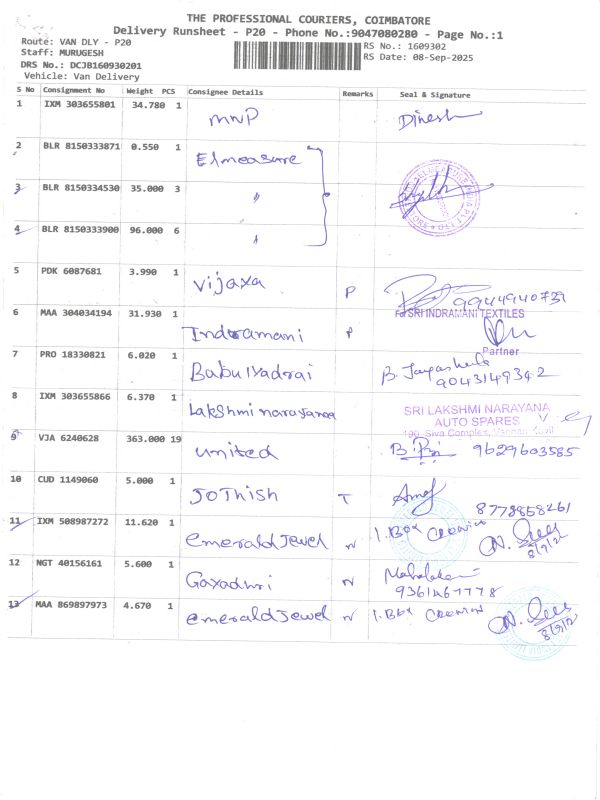 THE PROFESSIONAL COURIERS, COIMBATORE
Delivery Runsheet - P20 - Phone No.:9047080280 - Page No.:1
Route: VAN DLY - P20
RS No.: 1609302
Staff: MURUGESH
RS Date: 08-Sep-2025
DRS No.: DCJB160930201
Vehicle: Van Delivery
S No Consignment No Weight PCS Consignee Details Remarks Seal & Signature
1 IXM 303655801 34.780 1 MNP Dinesh
2 BLR 8150333871 0.550 1 Elmeasure
3 BLR 8150334530 35.000 3 "
4 BLR 8150333900 96.000 6 "
5 PDK 6087681 3.990 1 Vijaya P 9944940739
6 MAA 304034194 31.930 1 Indramani P
For SRI INDRAMANI TEXTILES
Partner
7 PRO 18330821 6.020 1
9043149342
8 IXM 303655866 6.370 1 Lakshmi narayana
SRI LAKSHMI NARAYANA
AUTO SPARES
190, Siva Complex,
9 VJA 6240628 363.000 19 United 9629603585
10 CUD 1149060 5.000 1 JOThish T 8778858261
11 IXM 508987272 11.620 1 emerald Jewel N 1. Box
12 NGT 40156161 5.600 1 Gayadhri N
13 MAA 869897973 4.670 1 emerald Jewel N 1. Box